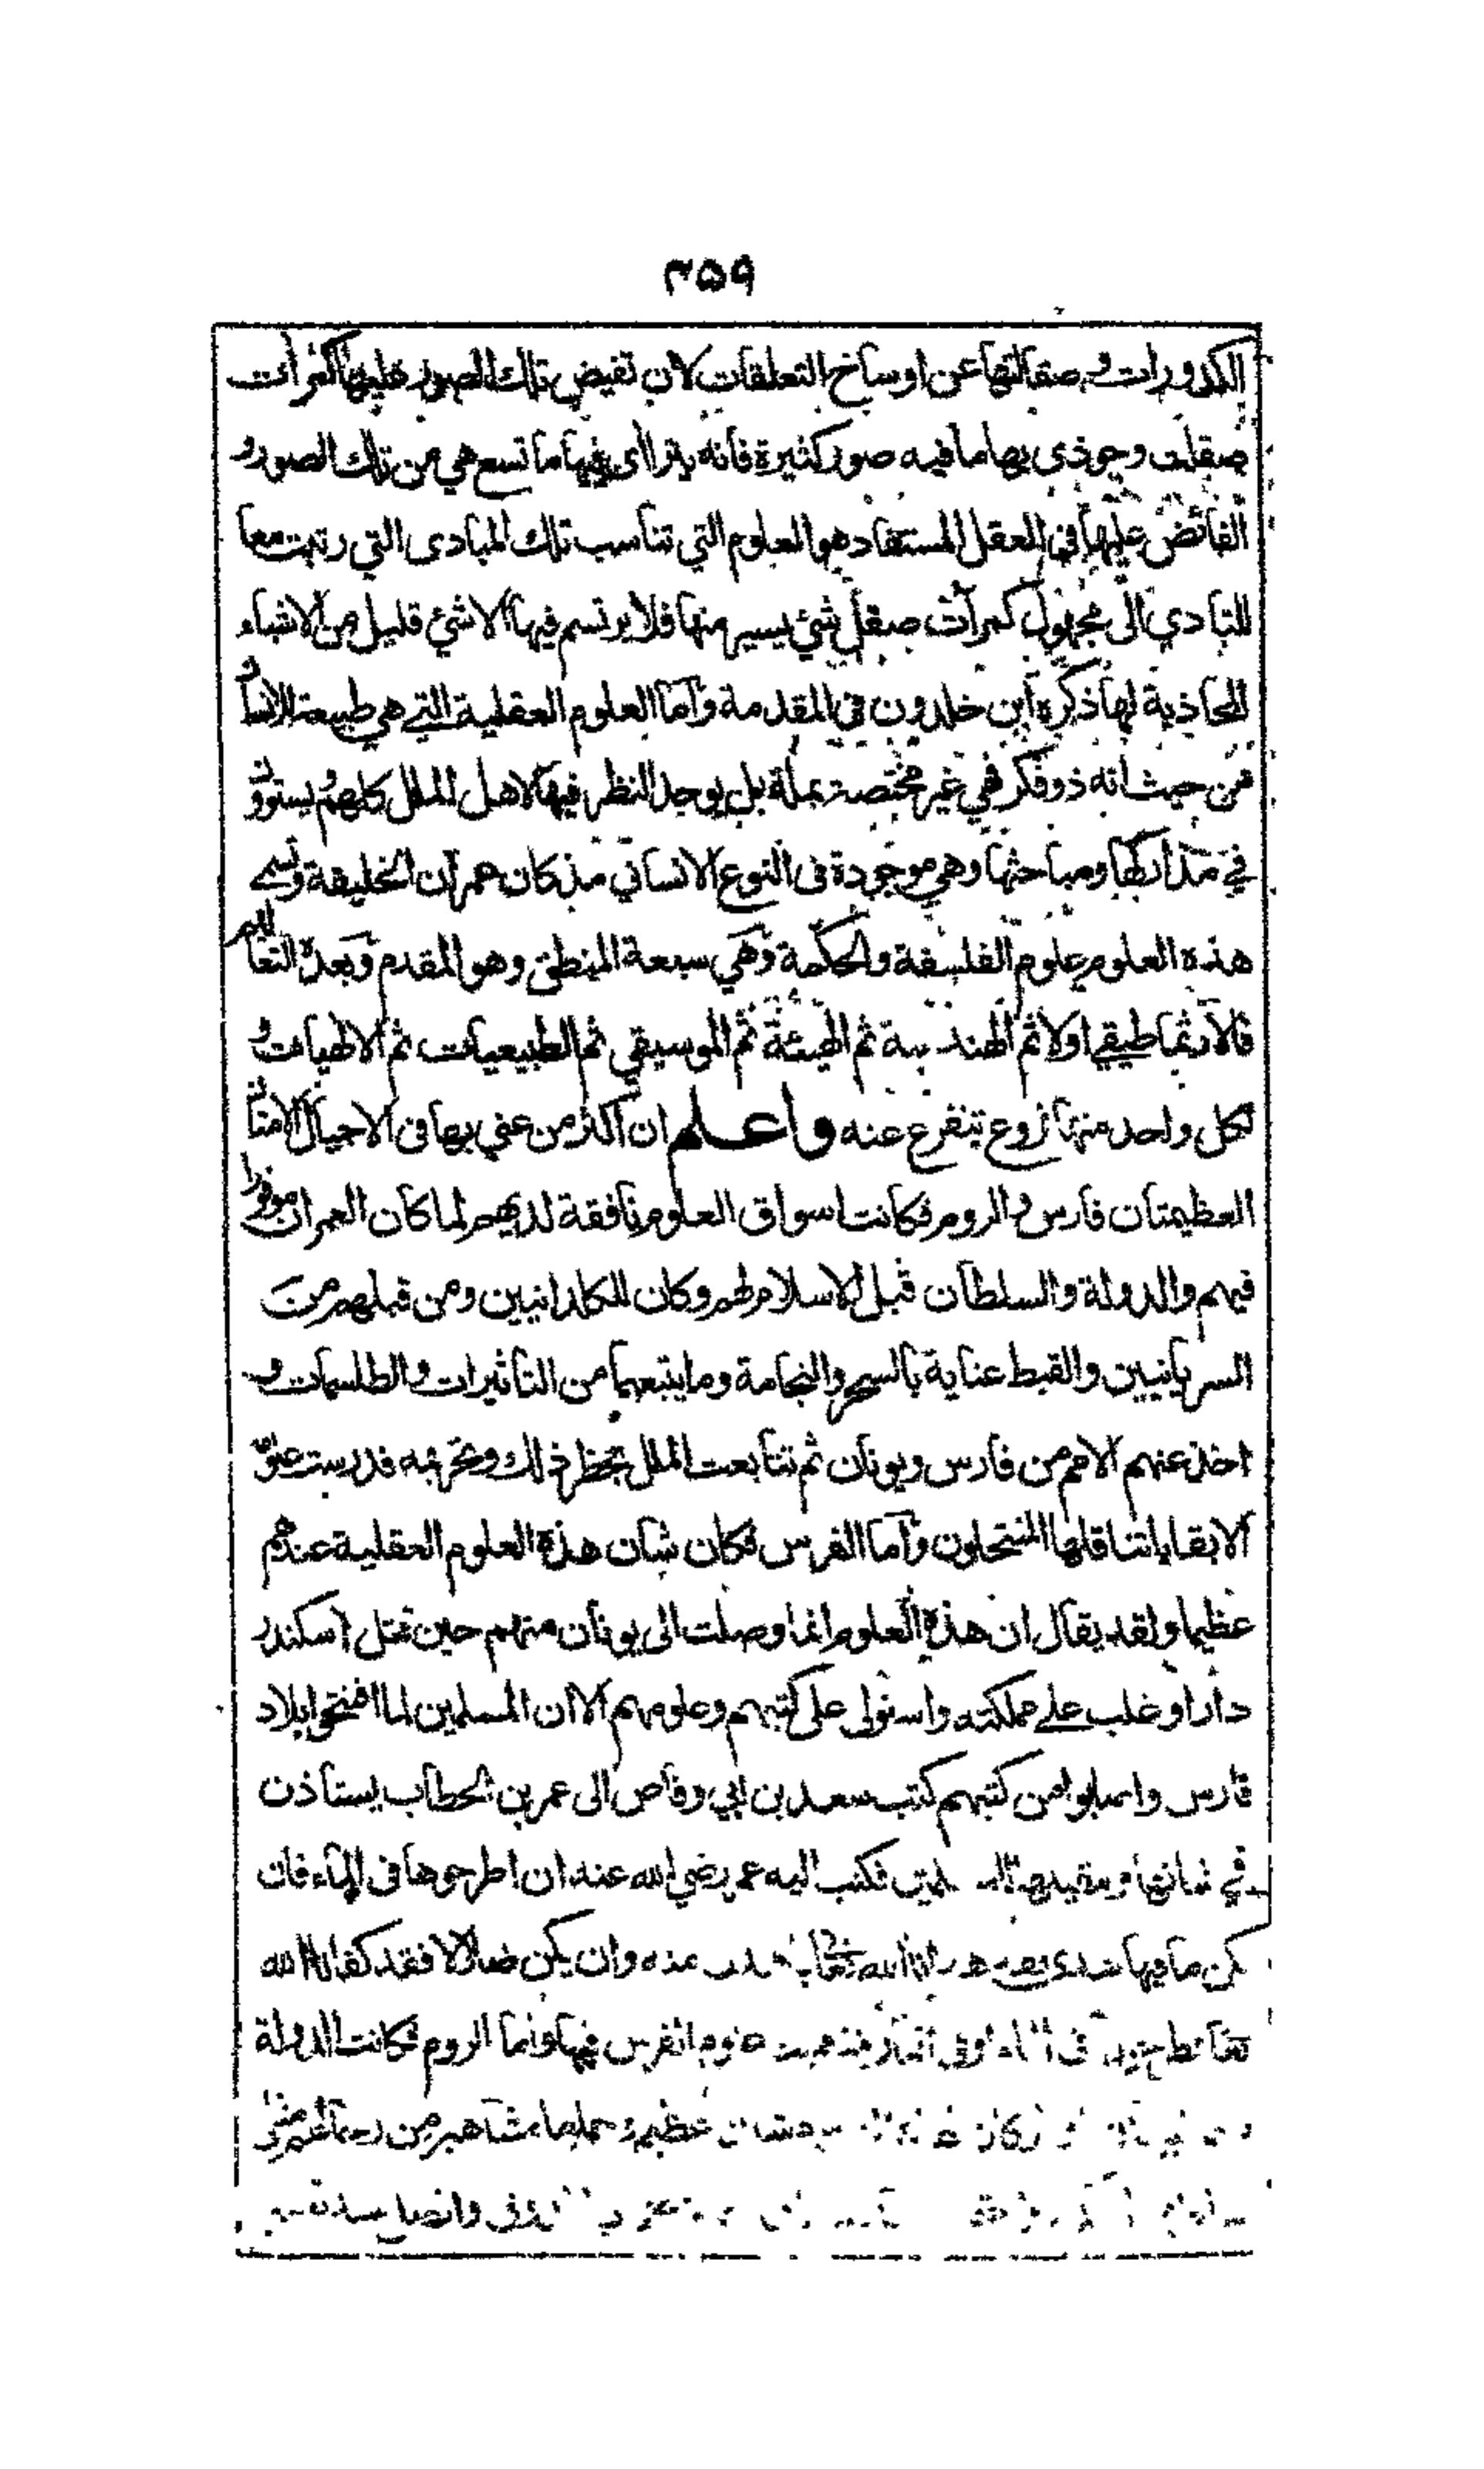 ٣٥٩
الكدورات وصقالتها عن اوساخ التعلقات لان تفيض تلك الصور عليها كمرائت
صقلت وحوذى بها ما فيه صور كثيرة فانه يتراأى فيها ما تسع هي من تلك الصور و
الفائض عليها في العقل المستفاد هو العلوم التي تناسب تلك المبادى التي رتبت معا
للتادي الى مجهول كمرآت صقل شئ يسير منها فلا يرتسم فيها الا شئ قليل من الاشياء
المحاذية لها ذكره ابن خلدون في المقدمة واما العلوم العقلية التي هي طبيعة الانسان
من حيث انه ذو فكر فهي غير مختصة بملة بل يوجد النظر فيها لاهل الملل كلهم ويستوون
في مداركها ومباحثها وهي موجودة فى النوع الانساني مذ كان عمران الخليقة وتسمى
هذه العلوم علوم الفلسفة والحكمة وهي سبعة المنطق وهو المقدم وبعده التعاليم
فالارثماطيقي اولا ثم الهندسة ثم الهيئة ثم الموسيقي ثم الطبيعيات ثم الالهيات و
لكل واحد منها فروع تتفرع عنه واعلم ان اكثر من عني بها فى الاجيال الامتان
العظيمتان فارس والروم فكانت اسواق العلوم نافقة لديهم لما كان العمران موفورا
فيهم والدولة والسلطان قبل الاسلام لهم وكان للكلدانيين ومن قبلهم من
السريانيين والقبط عناية بالسحر والنجامة وما يتبعها من التاثيرات والطلسمات و
اخذ عنهم الامم من فارس ويونان ثم تتابعت الملل بحظر ذلك وتحريمه فدرست علومه
الا بقايا تناقلها المنتحلون واما الفرس فكان شان هذه العلوم العقلية عندهم
عظيما ولقد يقال ان هذه العلوم انما وصلت الى يونان منهم حين قتل اسكندر
دارا وغلب على مملكته واستولى على كتبهم وعلومهم الا ان المسلمين لما افتتحوا بلاد
فارس واصابوا من كتبهم كتب سعد بن ابي وقاص الى عمر بن الخطاب يستاذن
في شانها فكتب اليه عمر رضي الله عنه ان اطرحوها فى الماء فان
يكن ما فيها هدى فقد هدانا الله منه وان يكن ضلالا فقد كفانا الله
فى الماء وفي علوم الفرس فيها واما الروم فكانت الدولة
وكان شان عظيم وحملها مشاهير من رجالهم مثل
واتصل سند